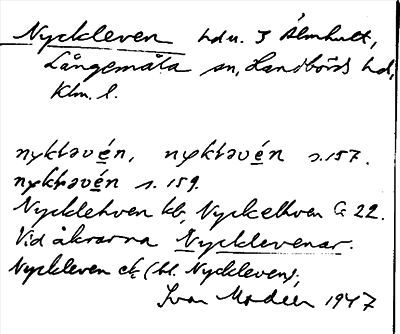 Nyckleven hdn. 3 Älmhult,
Långemåla sn, Handbörds hd,
Klm. l.
nyktəvén, nyktəvén s.157.
nyktəvén s. 159.
Nycklehven kb, Nyckelhven G 22.
Vid åkrarna Nycklevenar.
Nyckleven ek (bl. Nyckleven);
Ivar Modéer 1947